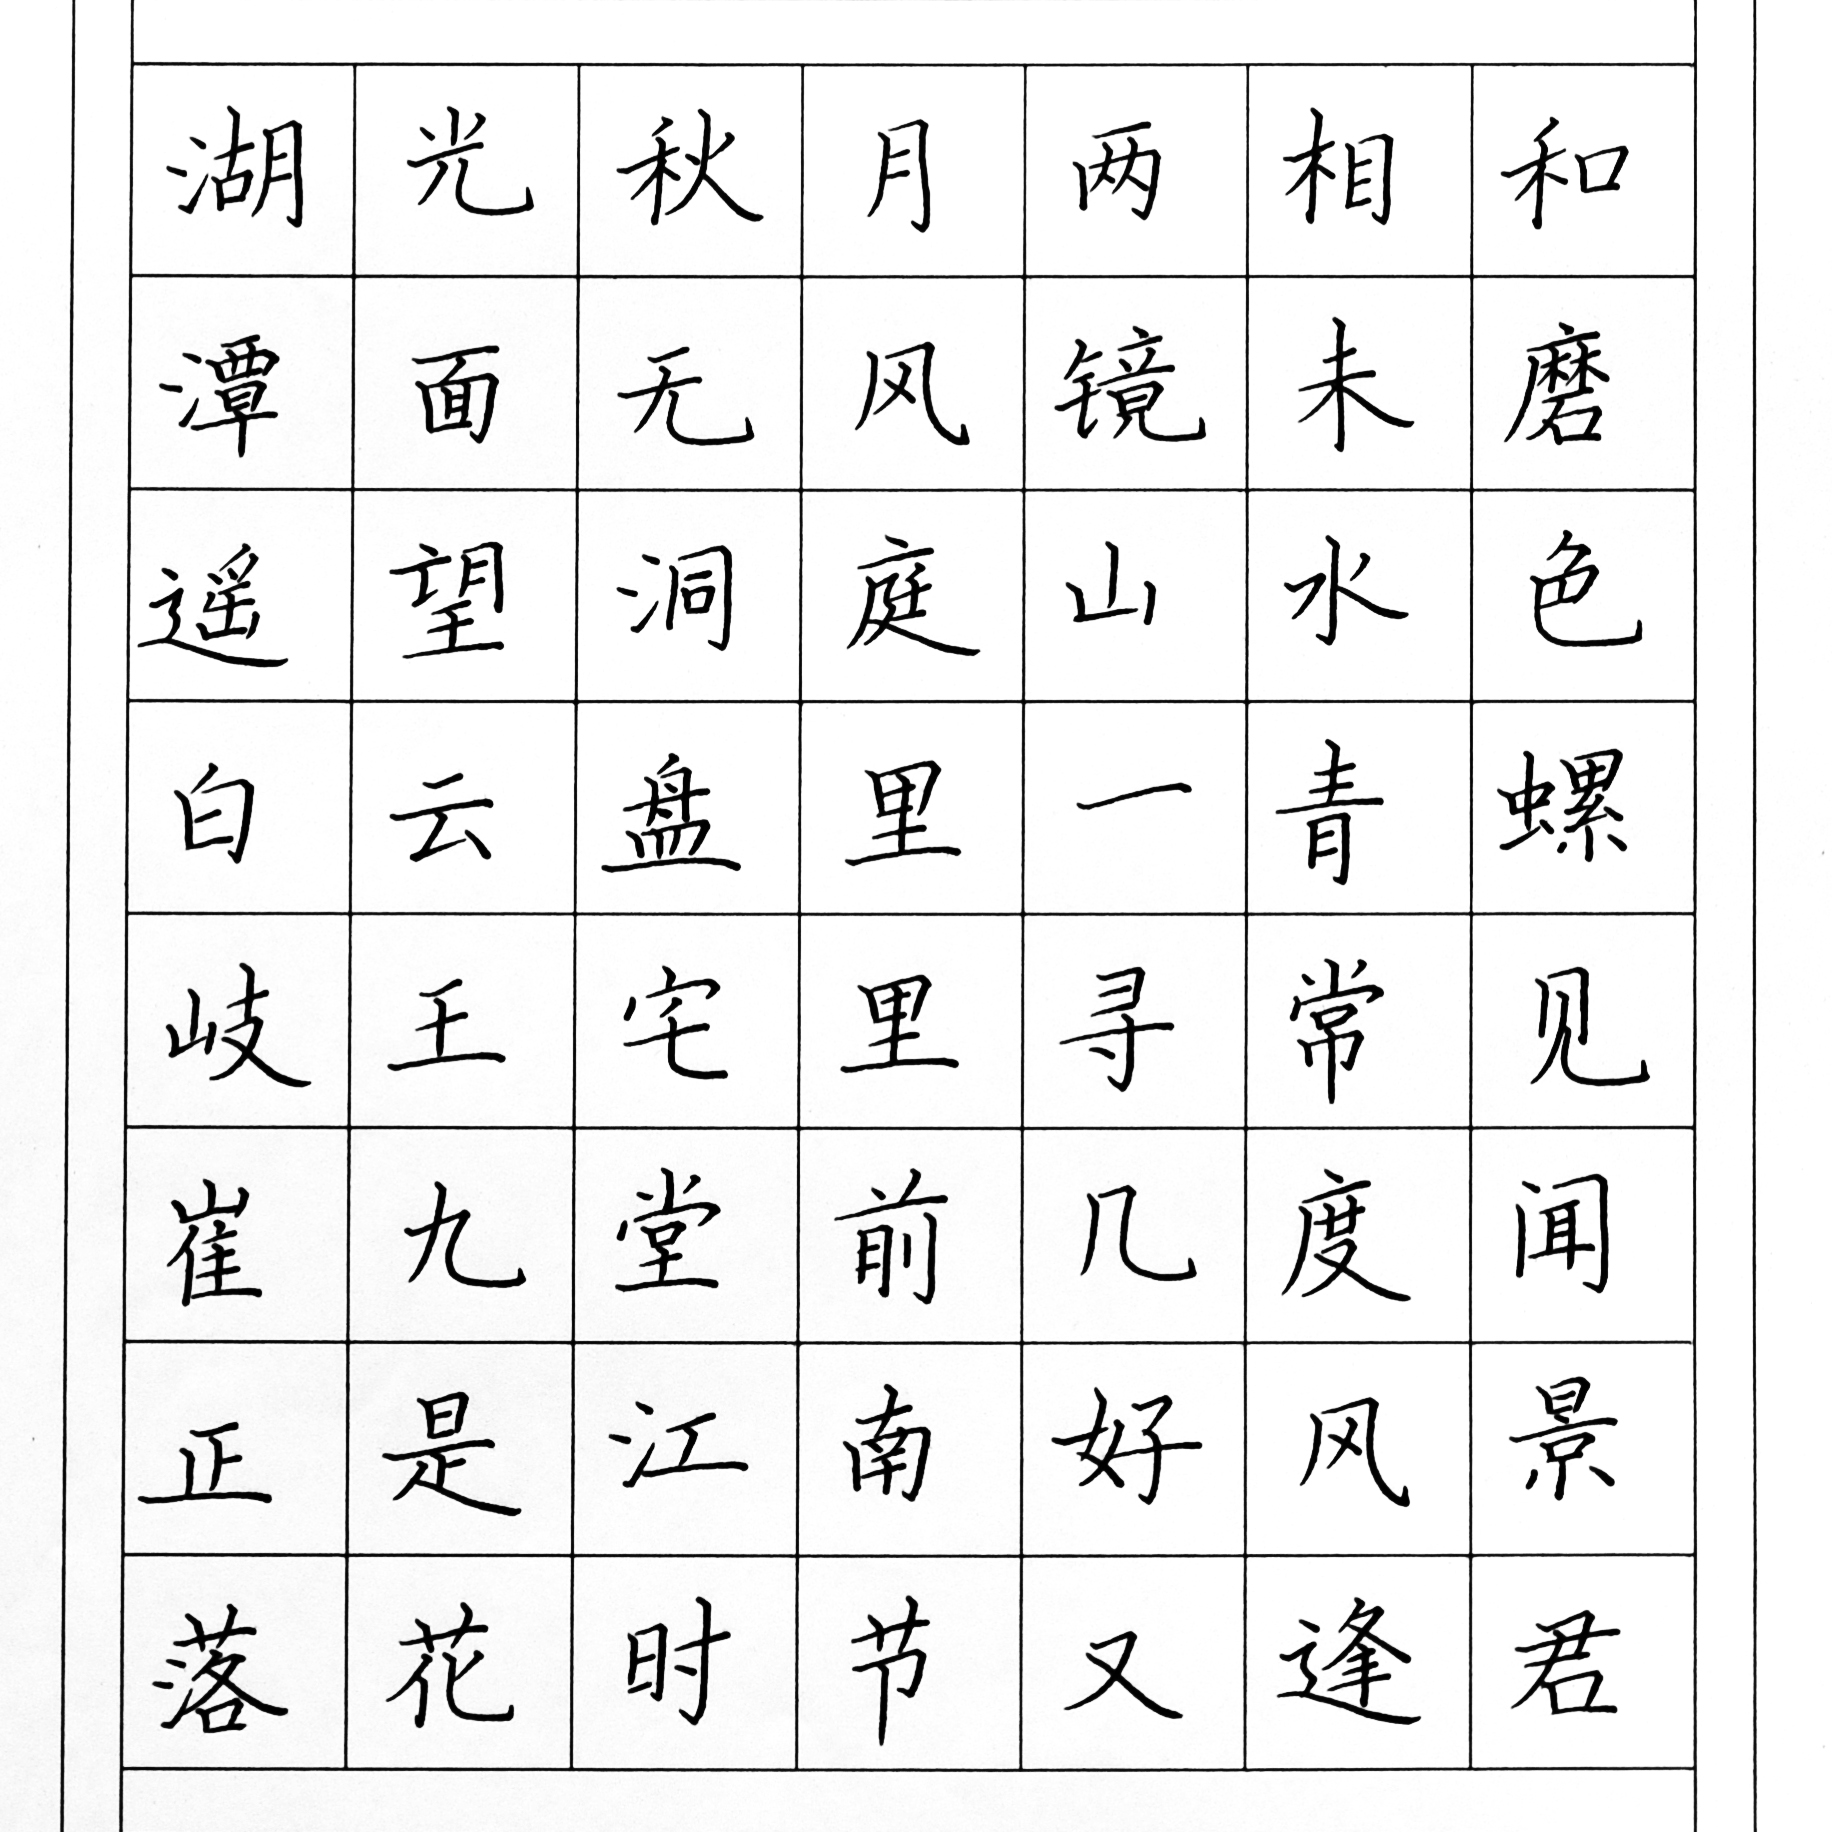 湖光秋月两相和
潭面无风镜未磨
遥望洞庭山水色
白云盘里一青螺
岐王宅里寻常见
崔九堂前几度闻
正是江南好风景
落花时节又逢君